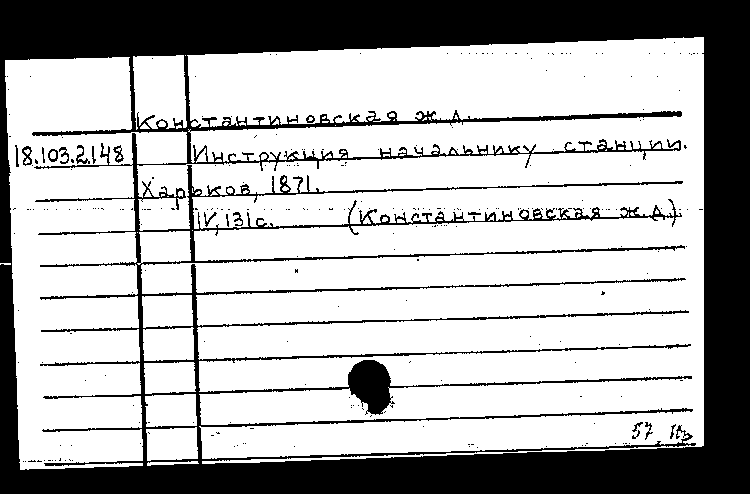 Константиновская ж.д.
18.103.2.148 Инструкция начальнику станции.
Харьков, 1871.
IV, 131 с. (Константиновская ж.д.)
57